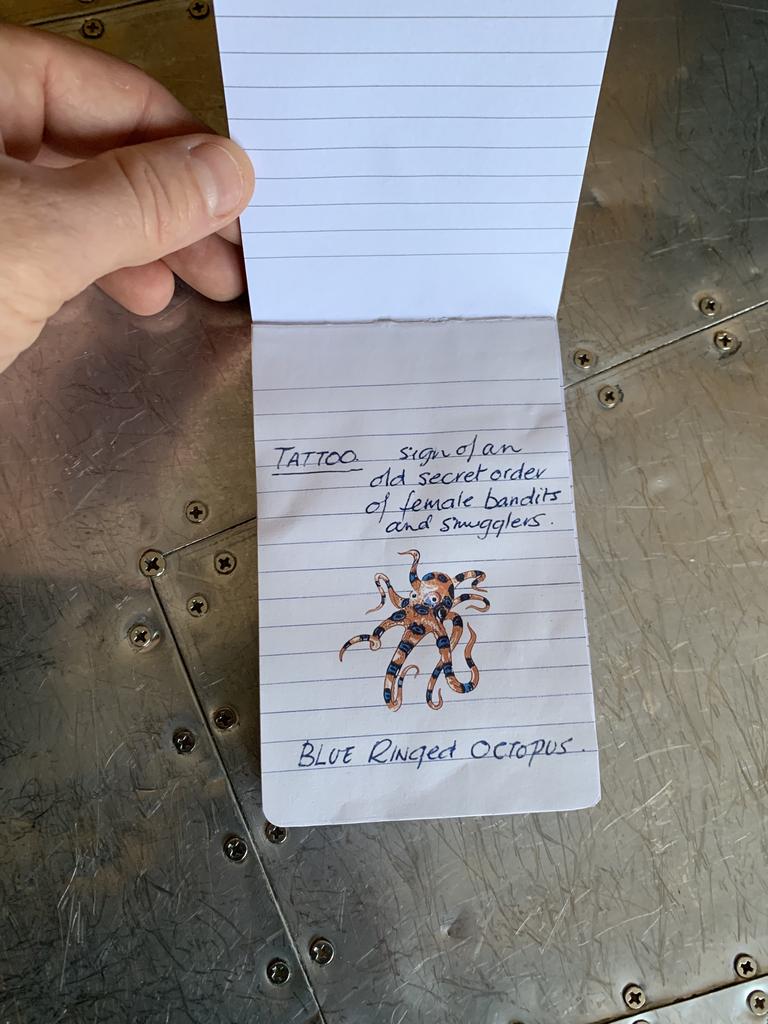 TATTOO sign of an
old secret order
of female bandits
and smugglers.
BLUE Ringed OCTOPUS.